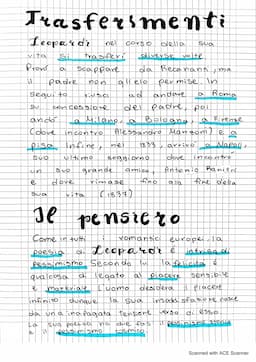 Trasferimenti
Leopardi nel corso della sua
vita si trasferì diverse volte
Provò a scappare da Recanati, ma
il padre non glielo permise. In
seguito riuscì ad andare a Roma
su concessione del padre, poi
andò a Milano, a Bologna, a Firenze
(dove incontrò Alessandro Manzoni) e a
Pisa Infine, nel 1833, arrivò a Napoli,
suo ultimo soggiorno dove incontrò
un suo grande amico, Antonio Ranieri
e dove rimase fino alla fine della
sua vita (1837)
Il pensiero
Come in tutti i romantici europei, la
poesia di Leopardi è intrisa di
pessimismo Secondo lui la felicità è
qualcosa di legato al piacere sensibile
e materiale L'uomo desidera il piacere
infinito dunque la sua insoddisfazione nasce
da una inappagata tensione verso di esso.
La sua poesia ha due fasi il pessimismo storico
e il pessimismo cosmico
Scanned with ACE Scanner